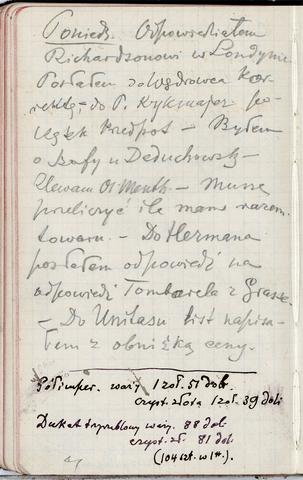 Poniedz. Odpowiedziałem
Richardsonowi w Londynie
Posłałem do Wędrowca kor-
rektę – do P. Rykmajer po-
czątek Przedpoł – Byłem
o szafy u Deduchowsk –
Zlewam Ol Menth. – Muszę
przeliczyć ile mam razem
towaru. – Do Hermana
posłałem odpowiedź na
odpowiedź Tombarela z Grasse
– Do Unitasu list napisa-
łem z obniżką ceny.
Półimper. waży 1 zoł. 51 dol.
czyst. złota 1 zoł. 39 doli
Dukat trzyrublowy waży. 88 dol.
czyst. zł. 81 dol.
(104 szt. w 1 #.).